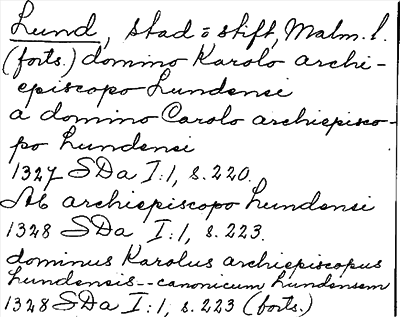 Lund, stad o stift, Malm. l.
(forts.) domino Karolo archi-
episcopo Lundensi
a domino Carolo archiepisco-
po Lundensi
1327 SDa I:1, s. 220.
Ab archiepiscopo Lundensi
1328 SDa I:1, s. 223.
dominus Karolus archiepiscopus
Lundensis--canonicum Lundensem
1328 SDa I:1, s. 223 (forts.)